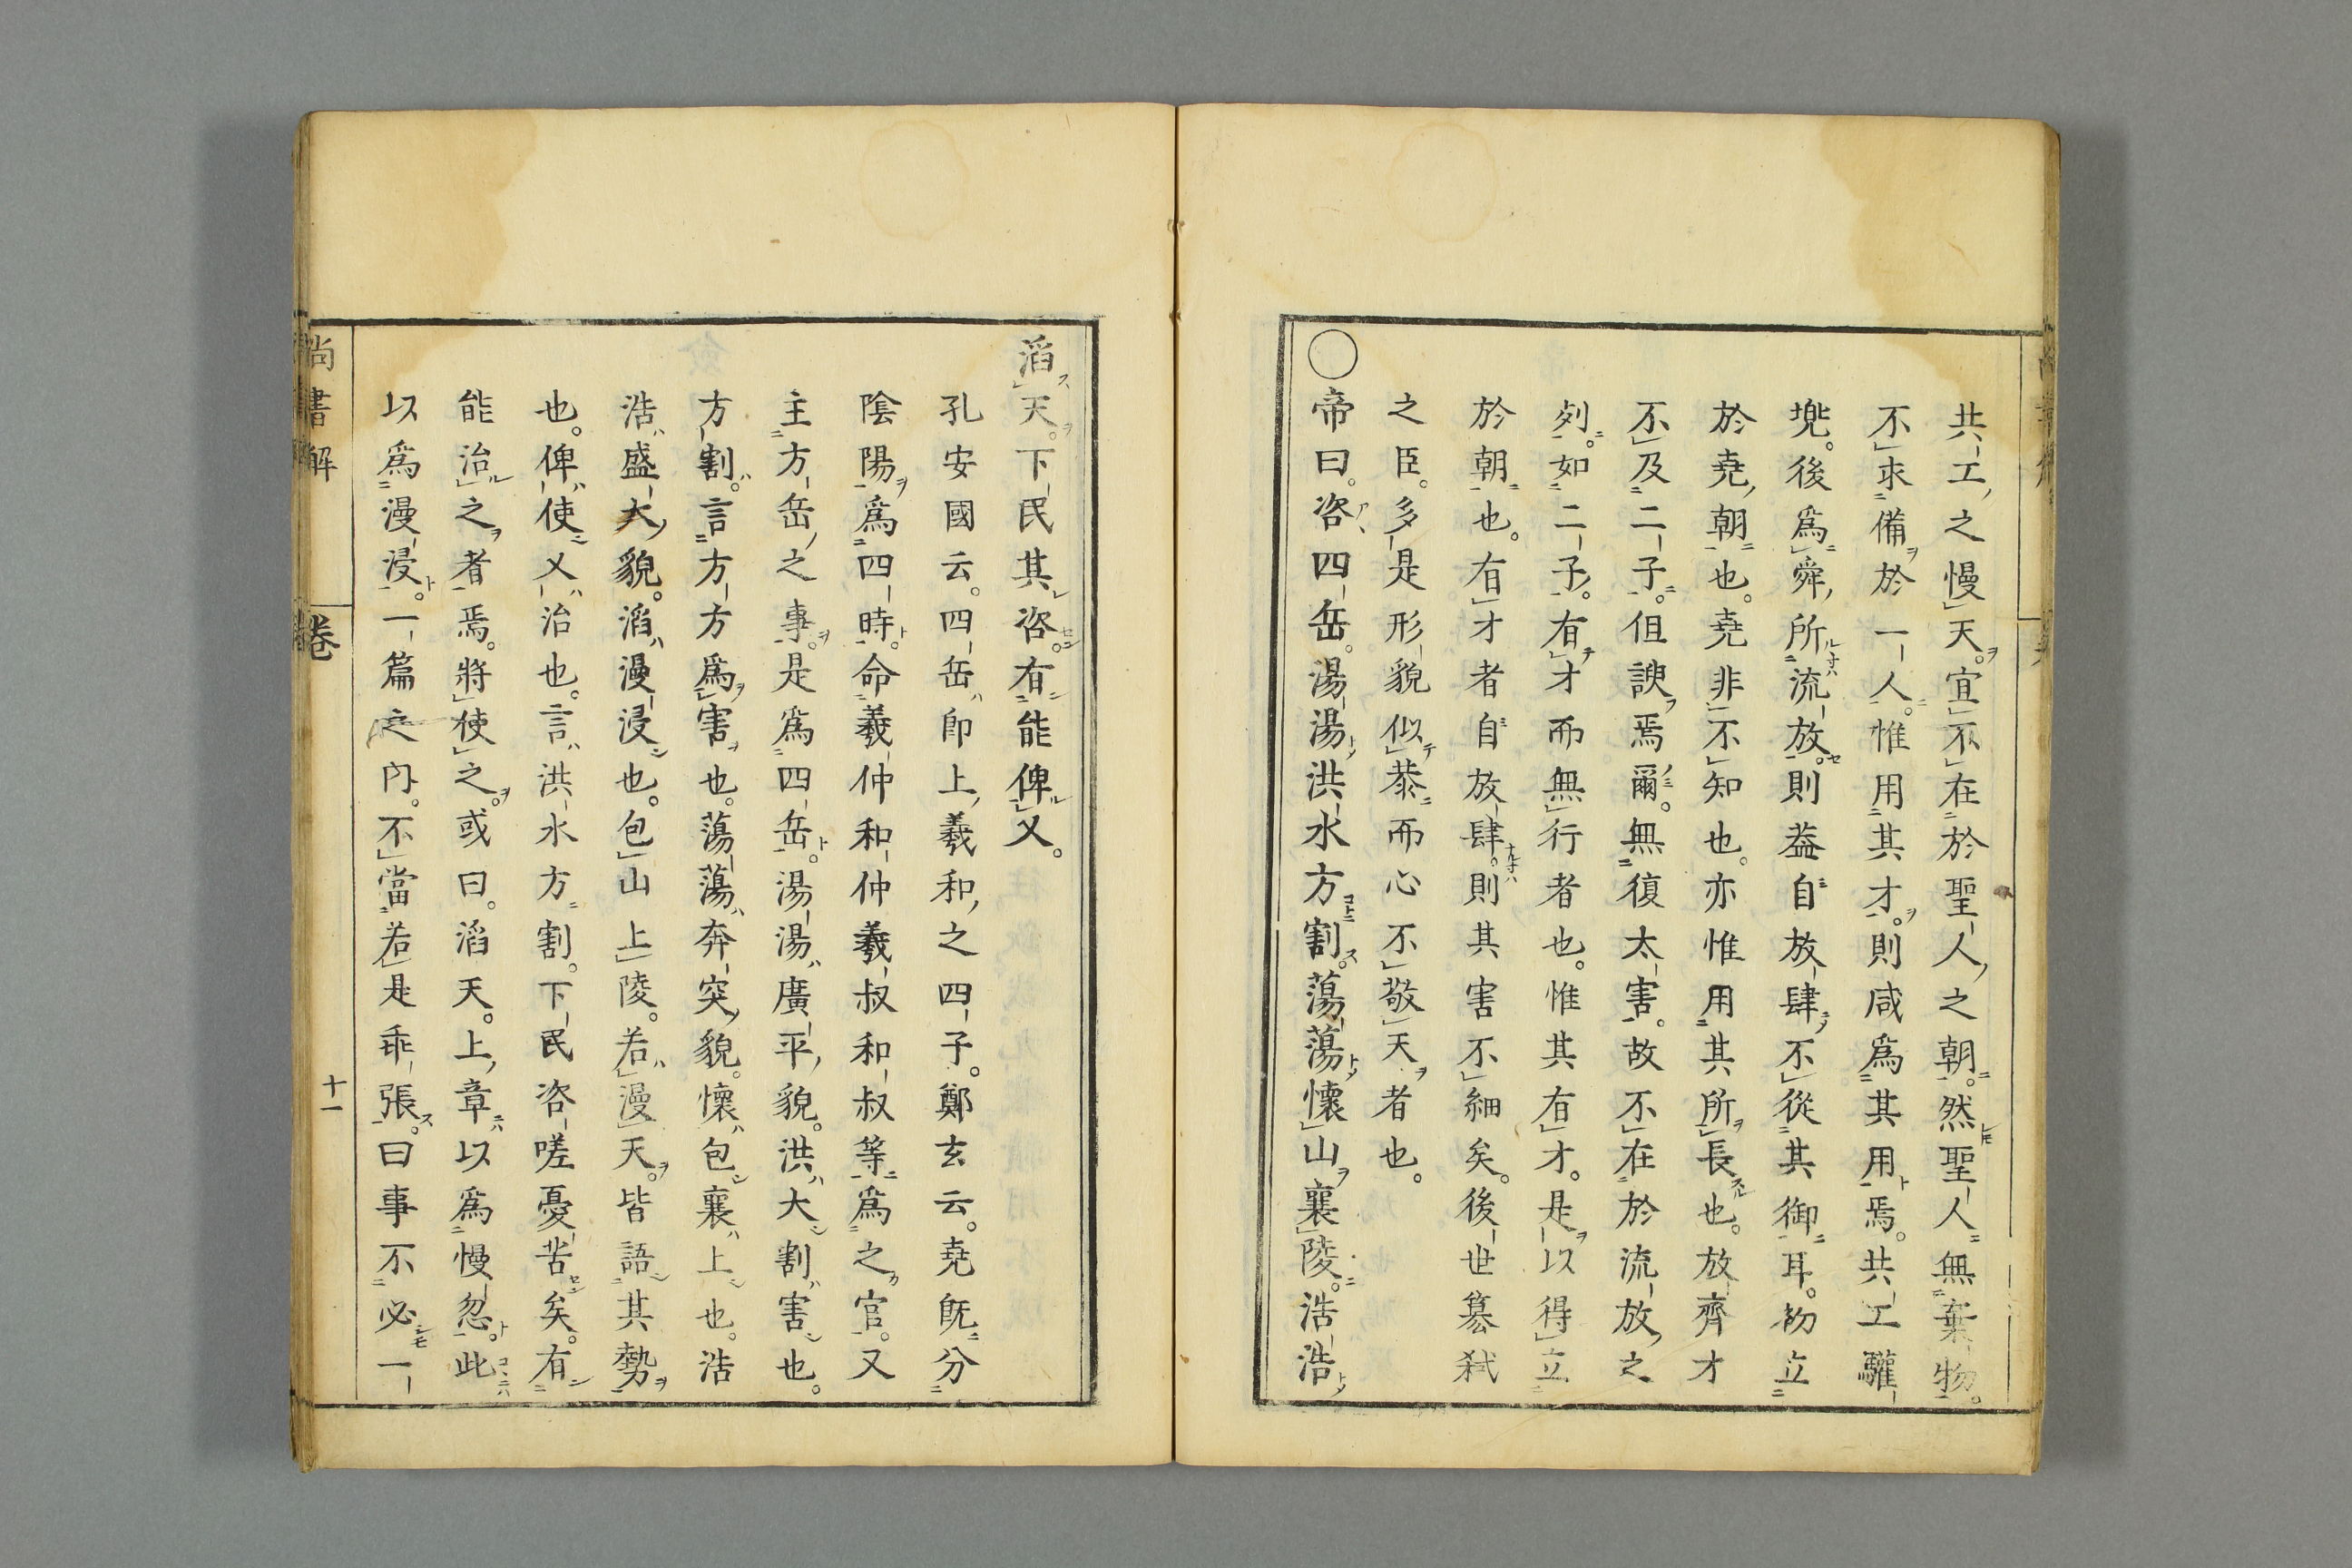 共工之慢天。宜不在於聖人之朝。然聖人無棄物。
不求備於一人。惟用其才。則咸爲其用焉。共工驩
兜。後爲舜所流放。則葢自放肆不從其御耳。初立
於堯朝也。堯非不知也。亦惟用其所長也。放齊才
不及二子。但諛焉爾。無復太害。故不在於流放之
列。如二子。有才而無行者也。惟其有才。是以得立
於朝也。有才者自放肆。則其害不細矣。後世簒弑
之臣。多是形貌似恭而心不敬天者也。
○帝曰。咨四岳。湯湯洪水方割。蕩蕩懷山襄陵。浩浩
滔天。下民其咨。有能俾乂。
孔安國云。四岳即上羲和之四子。鄭玄云。堯旣分
陰陽爲四時。命羲仲和仲羲叔和叔等爲之官。又
主方岳之事。是爲四岳。湯湯廣平貌。洪大割害也。
方割。言方方爲害也。蕩蕩奔突貌。懷包襄上也。浩
浩盛大貌。滔漫浸也。包山上陵。若漫天。皆語其勢
也。俾使乂治也。言洪水方割。下民咨嗟憂苦矣。有
能治之者焉。將使之。或曰。滔天。上章以爲慢忽。此
以爲漫浸。一篇之内。不當若是乖張。曰事不必一
尚書解
卷
十一